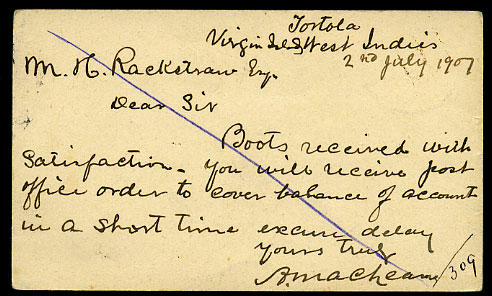 Tortola
Virgin Isls West Indies
2nd July 1907
M. H. Rackstraw Esq.
Dear Sir
Boots received with
Satisfaction - you will receive post
office order to cover balance of account
in a short time excuse delay
yours truly
309